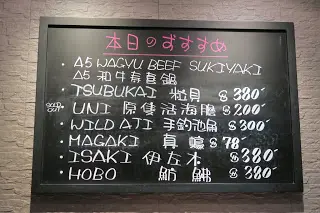 本日のおすすめ
• A5 WAGYU BEEF SUKIYAKI
A5 和牛寿喜鍋
• TSUBUKAI 粒貝 $380
SOLD OUT • UNI 原隻活海膽 $200
• WILD AJI 手釣池魚 $300
• MAGAKI 真蠔 $78
• ISAKI 伊左木 $380
• HOBO 魴鮄 $380